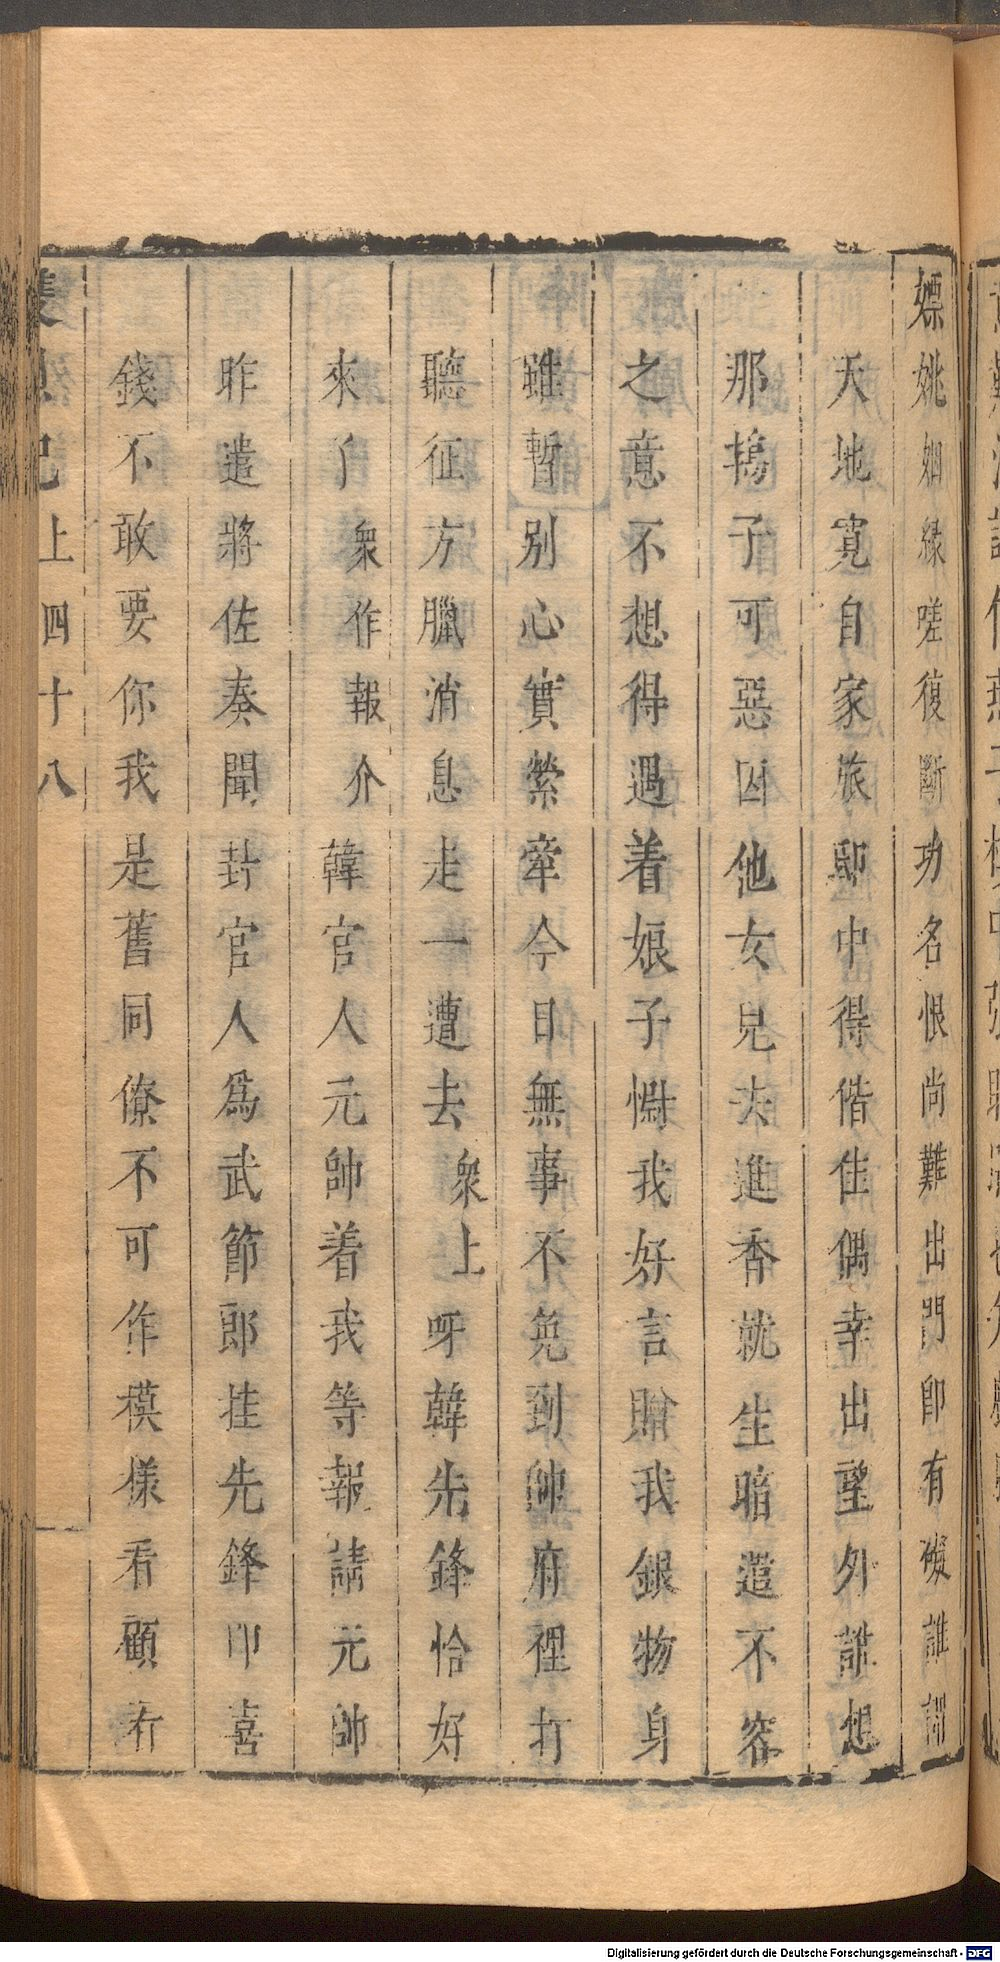 嫖姚姻緣嗟復斷功名恨尚難出門即有礙誰謂
天地寬自家旅邸中得偕佳偶幸出望外誰想
那搗子可惡因他女兒夫進香就生暗遣不容
之意不想得遇着娘子憐我好言贈我銀物身
雖暫別心實縈牽今日無事不免到帥府裡打
聽征方臘消息走一遭去衆上呀韓先鋒恰好
來了衆作報介韓官人元帥着我等報請元帥
昨遣將佐奏聞封官人爲武節郎挂先鋒印喜
錢不敢要你我是舊同僚不可作模樣看顧看
記上四十八
Digitalisierung gefördert durch die Deutsche Forschungsgemeinschaft - DFG